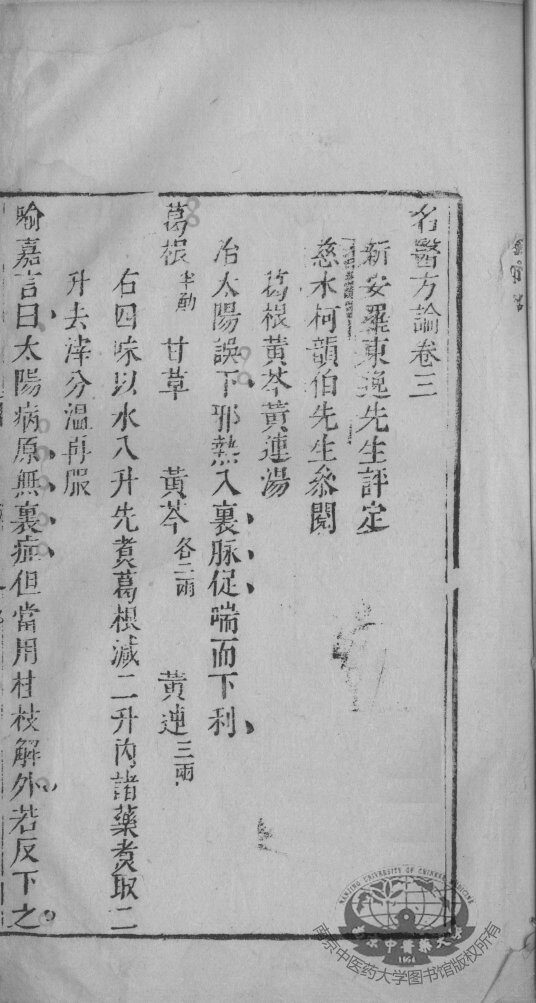 名醫方論卷三
新安羅東逸先生評定
慈水柯韻伯先生叅閱
葛根黃芩黃連湯
治太陽誤下邪熱入裏脉促喘而下利
葛根半觔 甘草 黃芩各二兩 黃連三兩
右四味以水八升先煑葛根減二升內諸藥煑取二
升去滓分溫再服
喻嘉言曰太陽病原無裏症但當用桂枝解外若反下之
NANJING UNIVERSITY OF CHINESE MEDICINE
南京中醫藥大學
1954
南京中医药大学图书馆版权所有